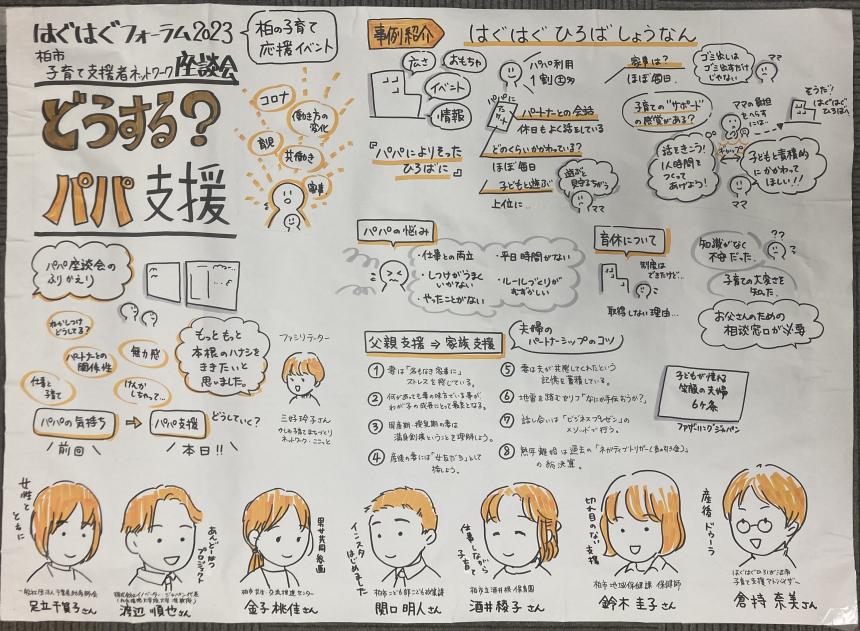 はぐはぐフォーラム2023
柏市
子育て支援者ネットワーク座談会
どうする?
パパ支援
柏の子育て
応援イベント
コロナ
働き方の
変化
育児
共働き
家事
事例紹介
はぐはぐひろばしょうなん
広さ
おもちゃ
イベント
情報
『パパによりそった
ひろばに』
パパ利用
1割
パパに
パートナーとの会話
休日もよく話をしている
どのくらいかかわっている?
ほぼ毎日
子どもと遊ぶ
上位に…
遊ぶと
見守るちがう
ママ
家事は?
ほぼ毎日
ゴミ出しは
ゴミ出すだけ
じゃない
ママ
子育ての"サポート"
の感覚がある?
ママの負担
をへらす
には…
そうだ!
はぐはぐ
ひろばへ
話をきこう!
1人時間を
つくって
あげよう!
ギャップ
子どもと直接的
にかかわって
ほしい!!
ママ
パパ座談会の
ふりかえり
ねかしつけ
どうしてる?
パートナーとの
関係性
無力感
仕事と
子育て
けんか
しちゃって…
もっともっと
本根のハナシを
ききたいと
思いました。
ファシリテーター
三好玲子さん
パパの気持ち
パパ支援
どうしていく?
前回
本日!!
パパの悩み
・仕事との両立
・平日時間がない
・しつけがうまく
いかない
・ルールづくりが
むずかしい
・やったことがない
育休について
制度は
できたけど…
取得しない理由…
知識がなく
不安だった。
??
子育ての大変さを
知った。
お父さんのための
相談窓口が必要
父親支援⇒家族支援
夫婦の
パートナーシップのコツ
① 妻は「名もなき家事に」
ストレスを感じている。
② 何があっても妻の味方でいる事が
わが子の成長にとって最良となる。
③ 周産期・授乳期の妻は
満身創痍ということを理解しよう。
④ 産後の妻には"女友だち"として
接しよう。
⑤ 妻は夫が共感してくれたという
記憶を蓄積している。
⑥ 地雷を踏むセリフ「なにか手伝おうか?」
⑦ 話し合いは「ビジネスプレゼン」の
メソッドで行う。
⑧ 熟年離婚は過去の「ネガティブトリガー(負の引き金)」
の総決算。
子どもが憧れる
笑顔の夫婦
6ヶ条
ファザーリングジャパン
女性と
ともに
一般社団法人千葉県助産師会
足立千賀子さん
あんどーなつ
プロジェクト
渡辺 順也さん
男女共同参画
柏市共生・交流推進センター
金子桃佳さん
インスタ
はじめました
柏市こども部こども政策課
関口明人さん
仕事しながら
子育て
柏市立酒井根保育園
酒井綾子さん
切れ目のない支援
柏市地域保健課 保健師
鈴木圭子さん
産後ドゥーラ
子育て支援アドバイザー
倉持奈美さん